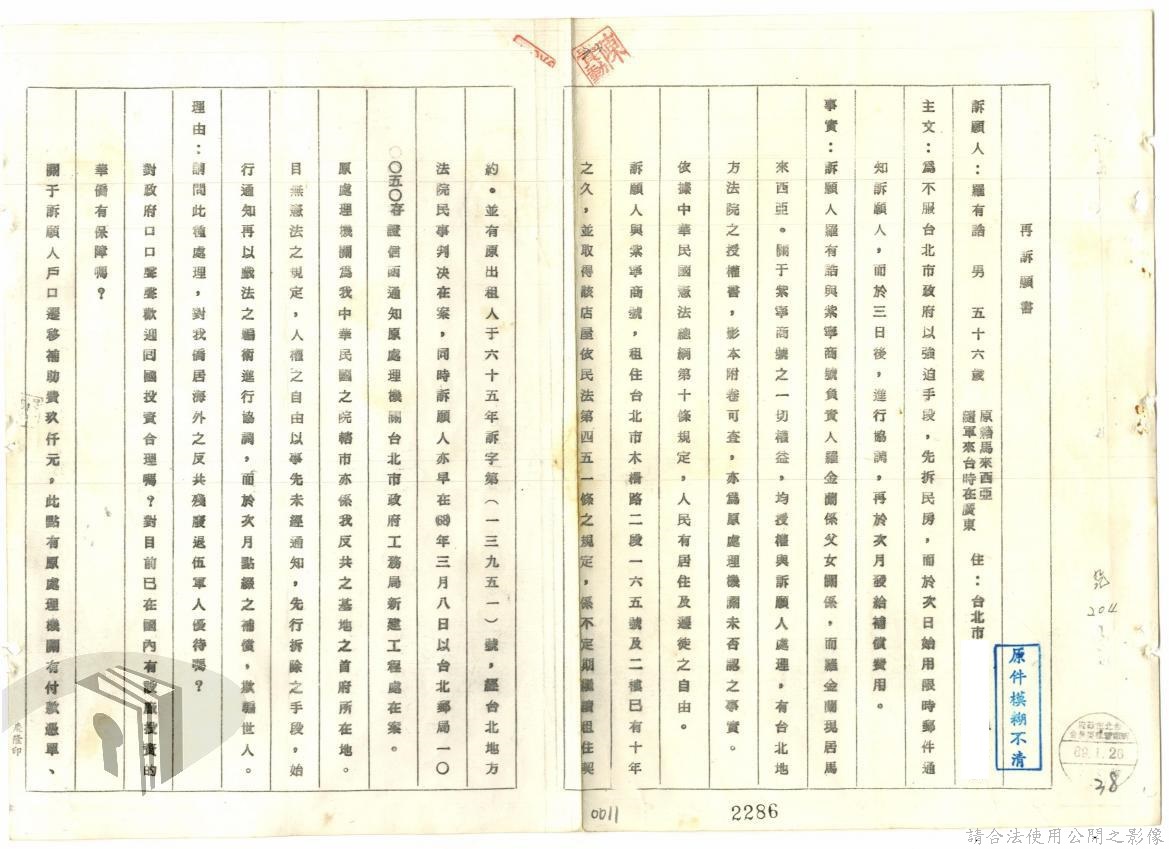 再訴願書
訴願人：羅有誥　男　五十六歲　原籍馬來西亞　隨軍來台時在廣東　住：台北市
主文：為不服台北市政府以強迫手段，先拆民房，而於次日始用限時郵件通
知訴願人，而於三日後，進行協調，再於次月發給補償費用。
事實：訴願人羅有誥與紫寧商號負責人羅金蘭係父女關係，而羅金蘭現居馬
來西亞。關于紫寧商號之一切權益，均授權與訴願人處理，有台北地
方法院之授權書，影本附卷可查，亦為原處理機關未否認之事實。
依據中華民國憲法總綱第十條規定，人民有居住及遷徙之自由。
訴願人與紫寧商號，租住台北市木柵路二段一六五號及二樓已有十年
之久，並取得該店屋依民法第四五一條之規定，係不定期繼續租住契
約。並有原出租人于六十五年訴字第（一三九五一）號，經台北地方
法院民事判決在案，同時訴願人亦早在(68)年三月八日以台北郵局一〇
〇〇五〇存證信函通知原處理機關台北市政府工務局新建工程處在案。
原處理機關為我中華民國之院轄市亦係我反共之基地之首府所在地。
目無憲法之規定，人權之自由以事先未經通知，先行拆除之手段，始
行通知再以戲法之騙術進行協調，而於次月點綴之補償，欺騙世人。
理由：請問此種處理，對我僑居海外之反共殘廢退伍軍人優待嗎？
對政府口口聲聲歡迎回國投資合理嗎？對目前已在國內有設廠投資的
華僑有保障嗎？
關于訴願人戶口遷移補助費玖仟元，此點有原處理機關有付款憑單、
原件模糊不清
69.1.26
38
204
0011
2286
請合法使用公開之影像